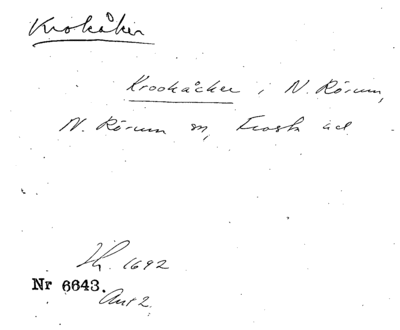 Krokåker
Krookåcker i N. Rörum,
N. Rörum sn, Frosta hd
Jb. 1692
Nr 6643.
Ant 2.